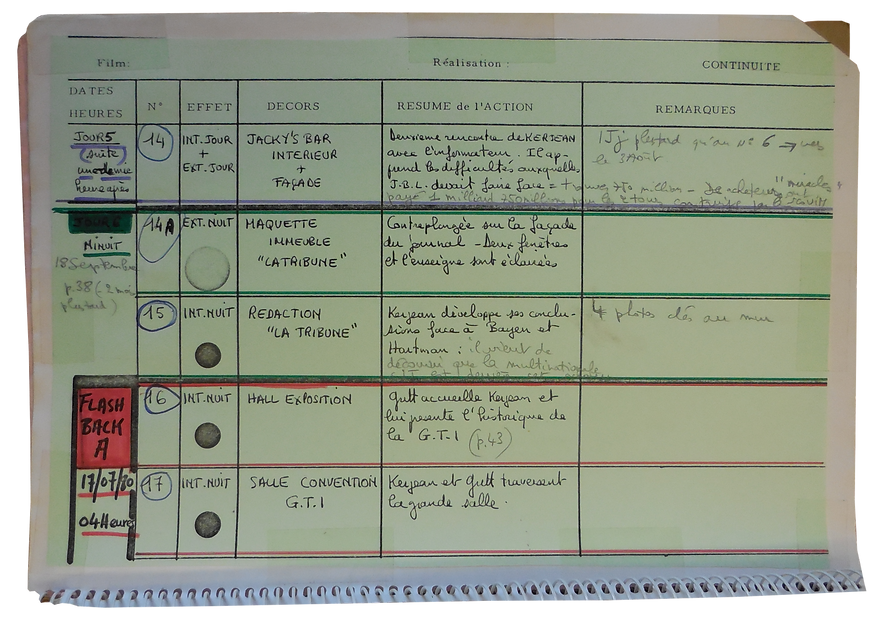 Film:
Réalisation :
CONTINUITE
DATES
HEURES
N°
EFFET
DECORS
RESUME de l'ACTION
REMARQUES
JOUR 5
(suite
une demie
heure après
14
INT. JOUR
+
EXT. JOUR
JACKY'S BAR
INTERIEUR
+
FAÇADE
Deuxième rencontre de KERJEAN
avec l'informateur. Il ap-
prend les difficultés auxquelles
J.B.L. devait faire face =
1 J j plus tard qu'au N° 6 → vers
le 3 Août
payé 1 milliard 750 millions pour les 2 tours
JOUR 6
MINUIT
18 Septembre
p.38 (2 mois
plus tard)
14A
EXT. NUIT
MAQUETTE
IMMEUBLE
"LA TRIBUNE"
Contreplongée sur la façade
du journal - Deux fenêtres
et l'enseigne sont éclairées
15
INT. NUIT
REDACTION
"LA TRIBUNE"
Kerjean développe ses conclu-
sions face à Bayen et
Hartman : il vient de
découvrir que la multinationale
4 photos clés au mur
FLASH
BACK
A
16
INT. NUIT
HALL EXPOSITION
Gutt accueille Kerjean et
lui présente l'historique de
la G.T.I (p.43)
17/07/80
04 Heures
17
INT. NUIT
SALLE CONVENTION
G.T.I
Kerjean et Gutt traversent
la grande salle.